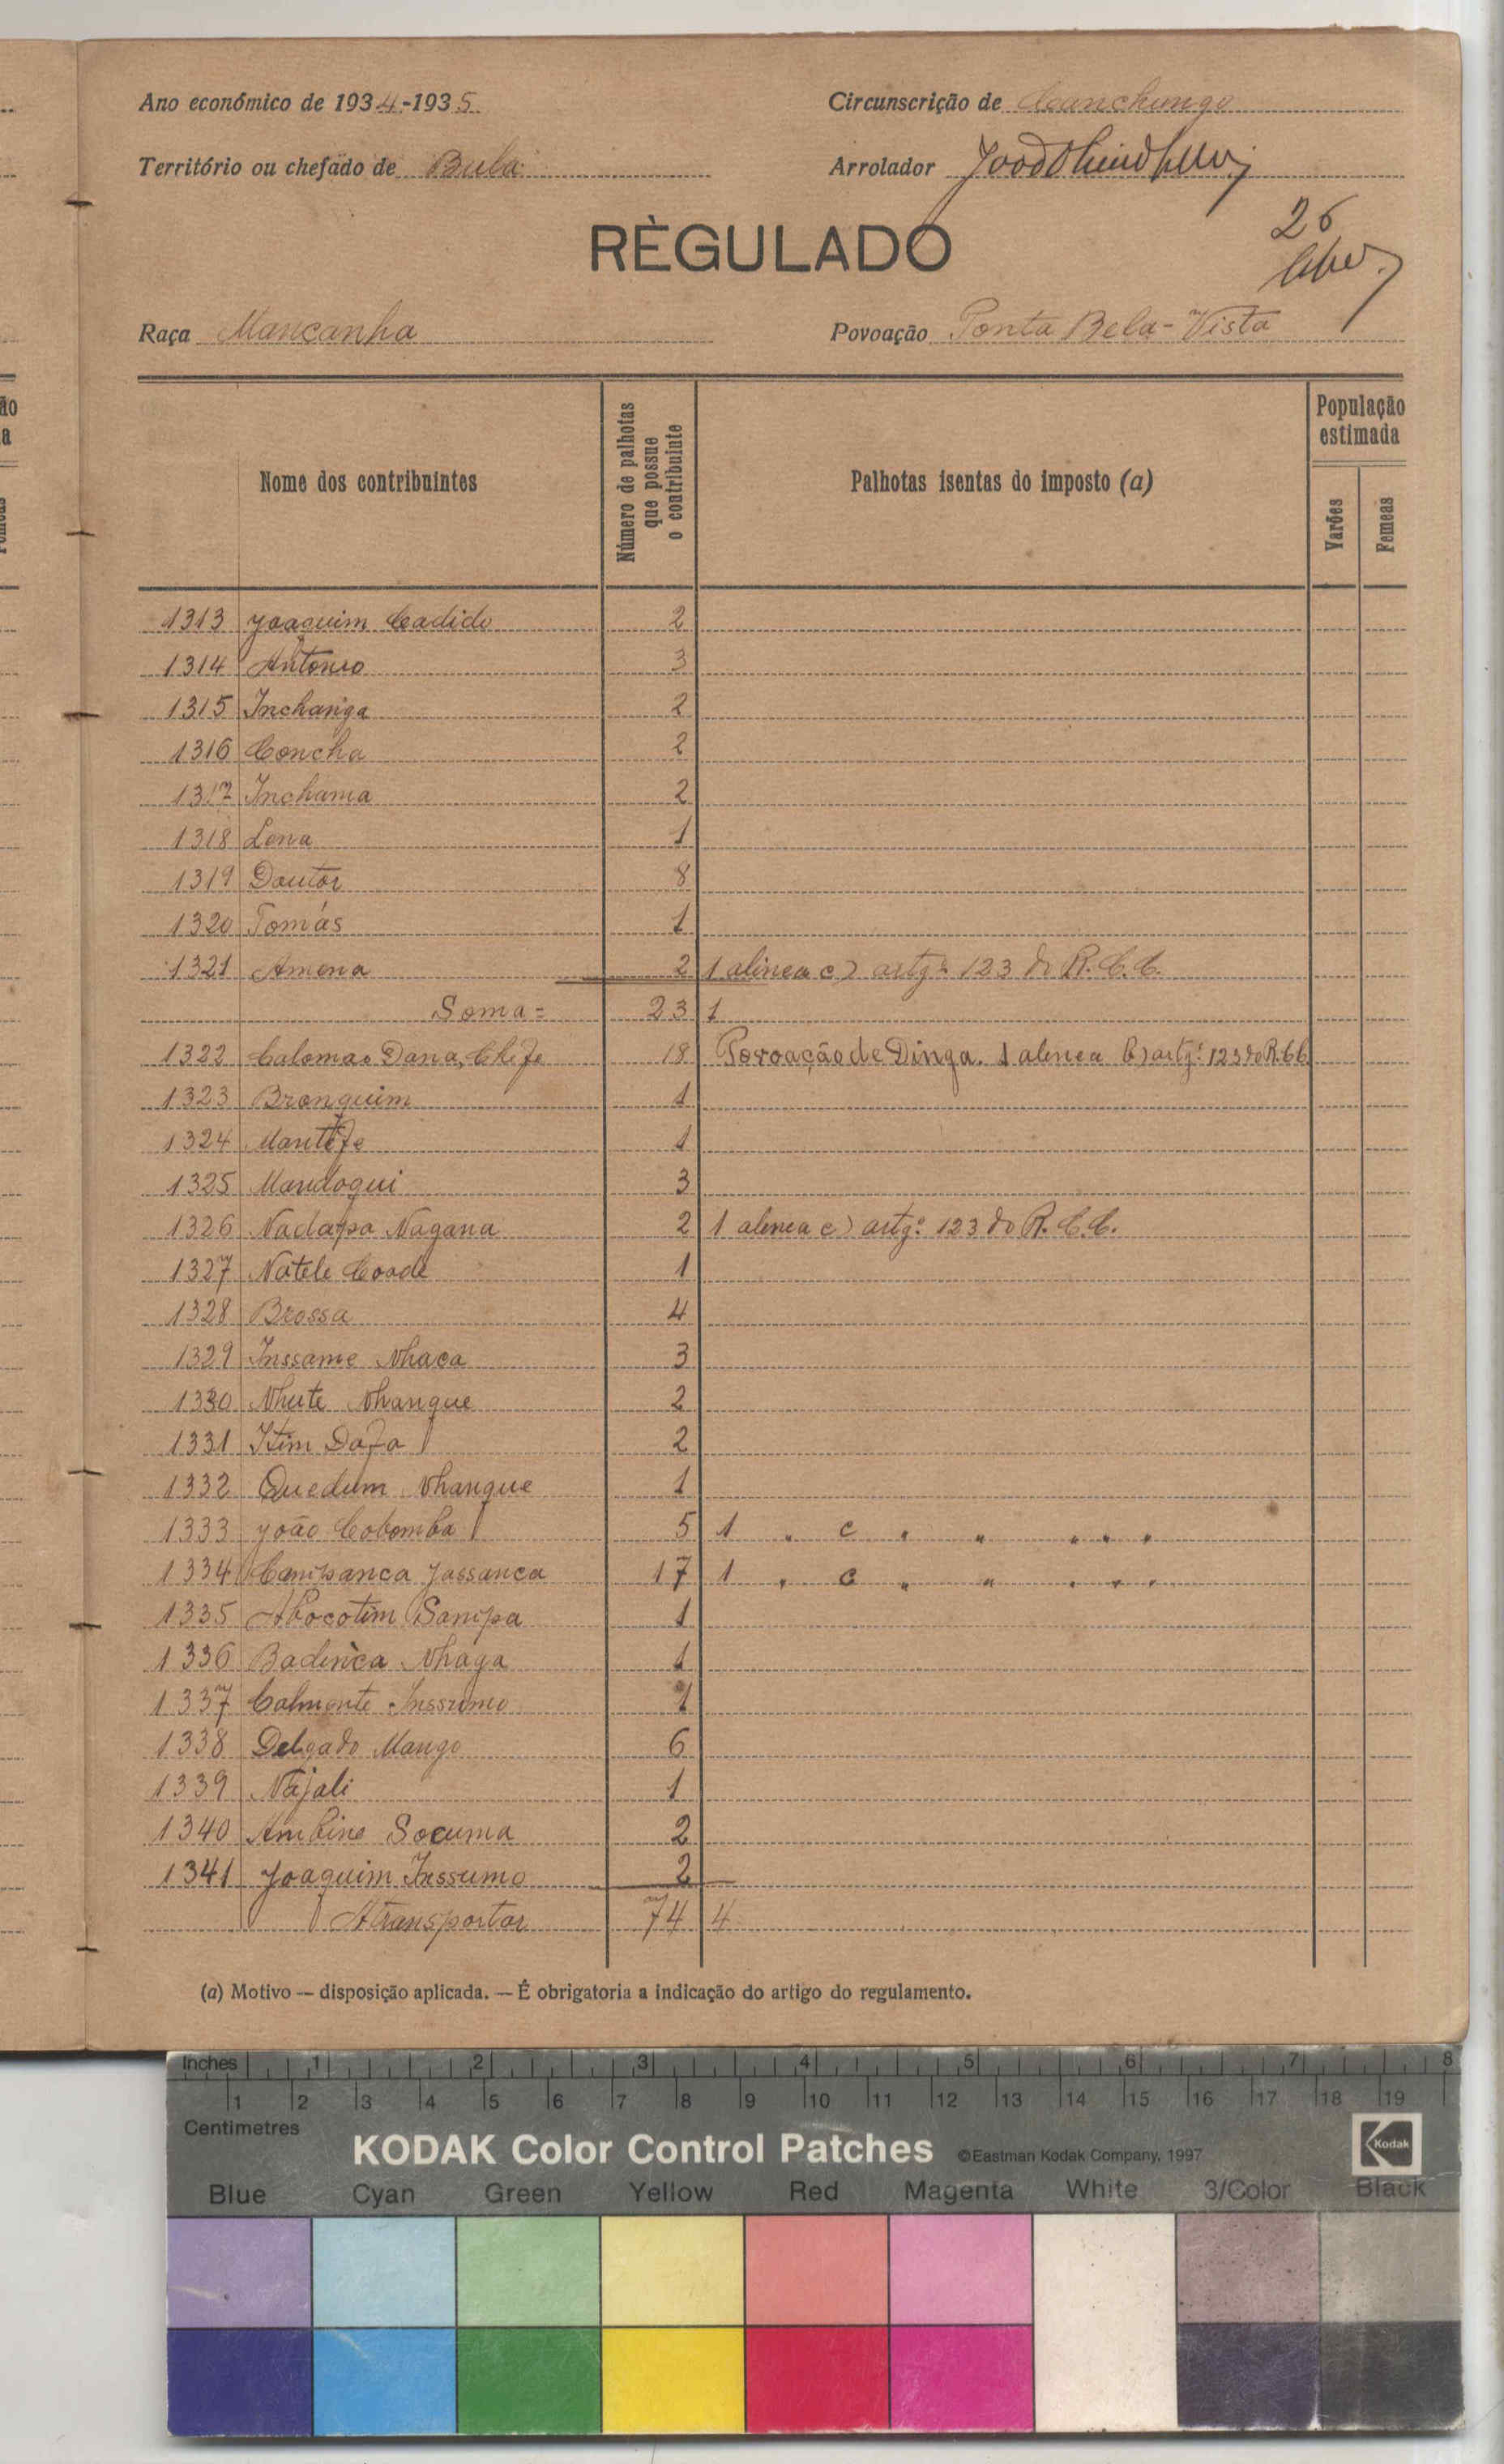 Ano económico de 1934-1935
Circunscrição de Canchungo
Território ou chefado de Bula
Arrolador
26
RÈGULADO
Raça Mancanha
Povoação Ponta Bela-Vista
Nome dos contribuintes
Número de palhotas que possue o contribuinte
Palhotas isentas do imposto (a)
População estimada
Varões
Femeas
1313 Joaquim Cadido 2
1314 Antonio 3
1315 Inchanga 2
1316 Concha 2
1317 Inchama 2
1318 Lona 1
1319 Doutor 8
1320 Tomás 1
1321 Amona 2 1 alinea c) artgº 123 do R.C.C.
Soma = 23 1
1322 Calomao Dana, Chefe 18 Povoação de Dinga. 1 alenea b) artgº 123 do R.C.C.
1323 Bronquim 1
1324 Mantefe 1
1325 Mandoqui 3
1326 Nadapa Nagana 2 1 alenea c) artgº 123 do R.C.C.
1327 Natele Coode 1
1328 Brossa 4
1329 Inssame Nhaca 3
1330 Nhute Nhanque 2
1331 Itim Dafa 2
1332 Quedum Nhanque 1
1333 João Cobomba 5 1 " c " " " " "
1334 Canpanca Jassanca 17 1 " c " " " " "
1335 Abocotim Sampa 1
1336 Badinca Nhaga 1
1337 Calmonte Inssumo 1
1338 Delgado Mango 6
1339 Najali 1
1340 Ambine Socuma 2
1341 Joaquim Inssumo 2
A transportar 74 4
(a) Motivo — disposição aplicada. — É obrigatoria a indicação do artigo do regulamento.
Inches 1 2 3 4 5 6 7 8
1 2 3 4 5 6 7 8 9 10 11 12 13 14 15 16 17 18 19
Centimetres
KODAK Color Control Patches ©Eastman Kodak Company, 1997 Kodak
Blue Cyan Green Yellow Red Magenta White 3/Color Black